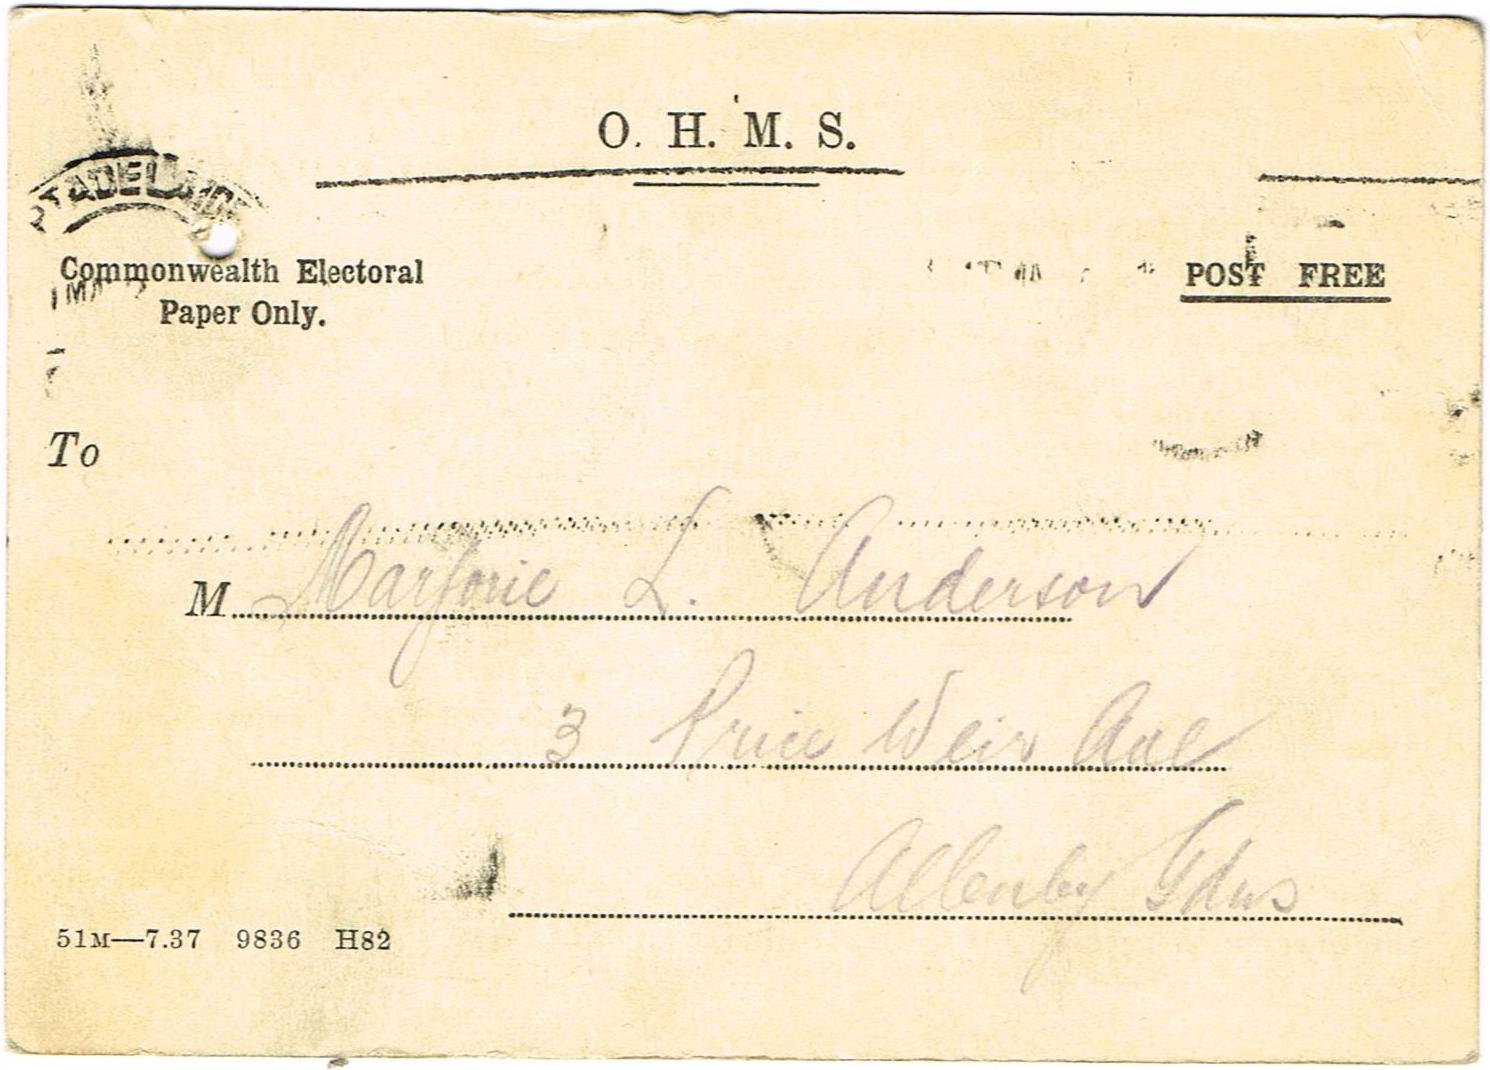 O. H. M. S.
ADELAIDE
Commonwealth Electoral
Paper Only.
POST FREE
To
M Marjorie L. Anderson
3 Price Weir Ave
Allenby Gdns
51M—7.37 9836 H82